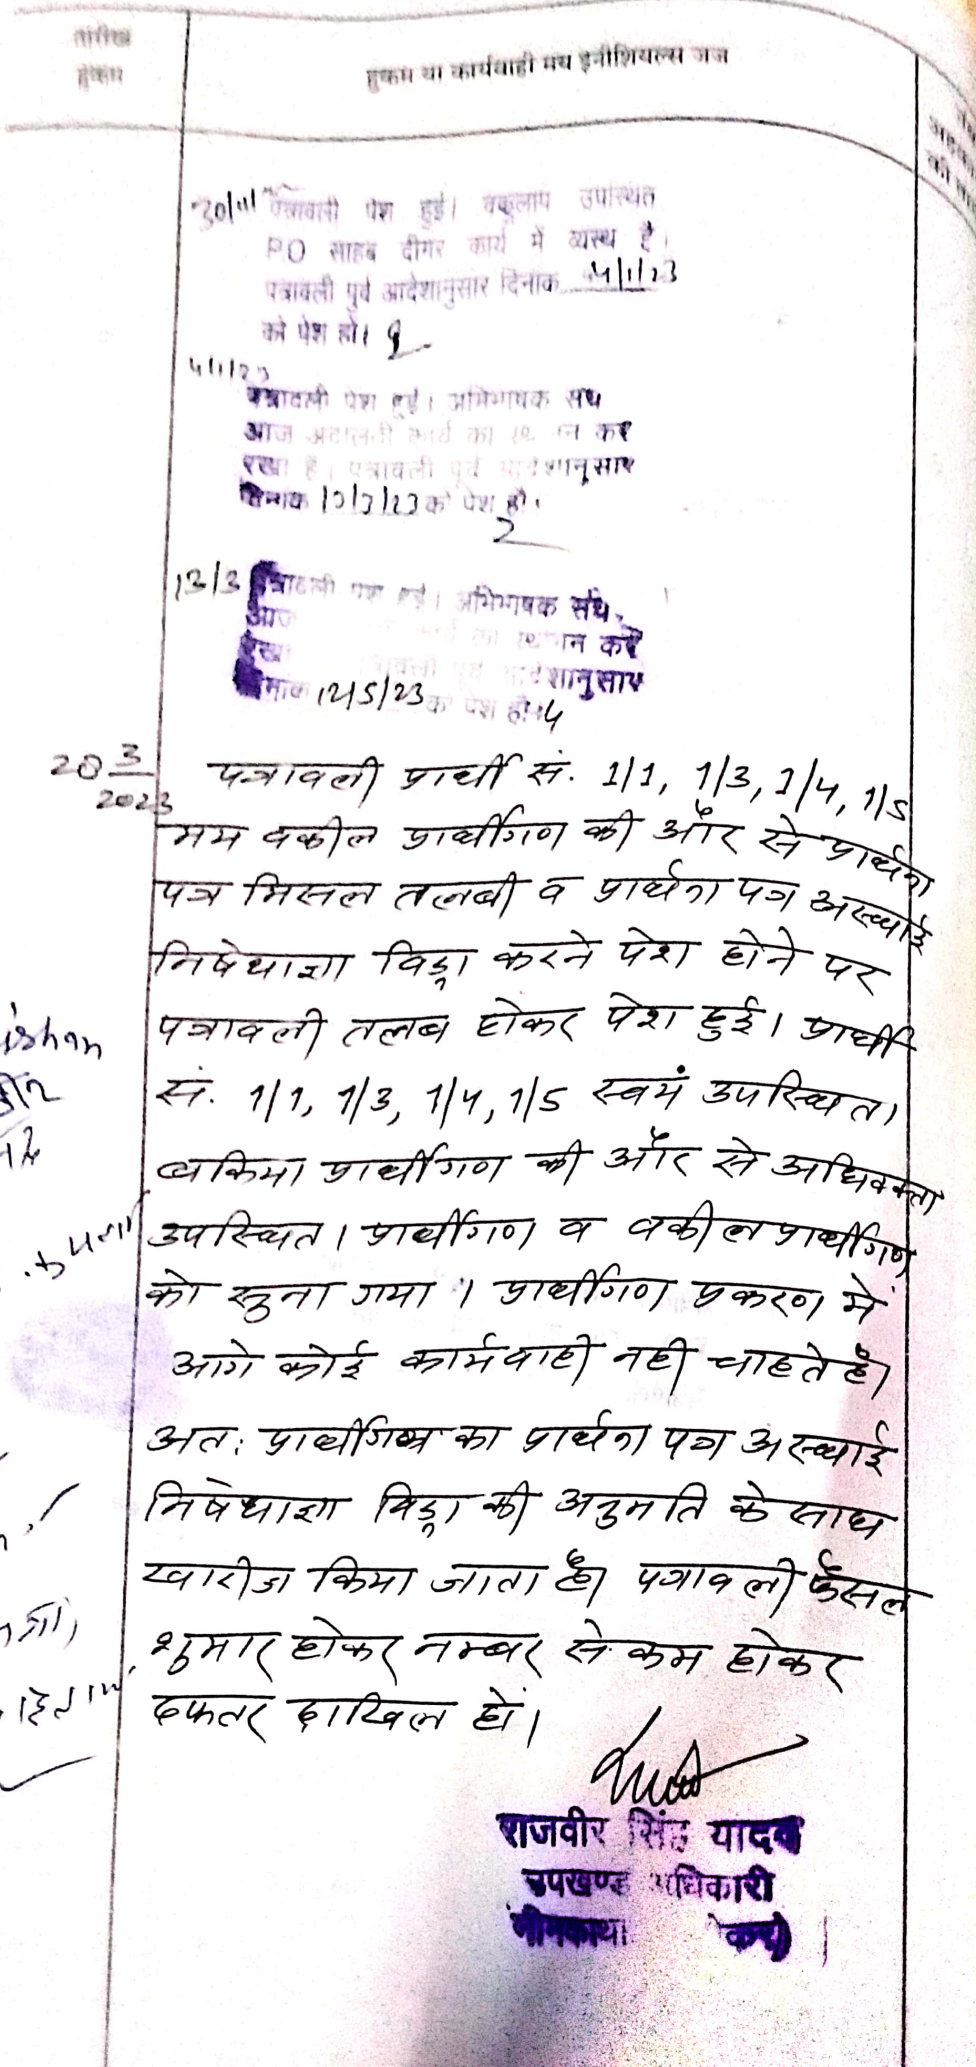 तारीख
हुकम
हुकम या कार्यवाही मय इनीशियल्स जज
30/11 पत्रावली पेश हुई। वकुलाय उपस्थित
P.O साहब दीगर कार्य में व्यस्थ है।
पत्रावली पुर्व आदेशानुसार दिनाक 4/1/23
को पेश हो।
4/1/23
पत्रावली पेश हुई। अभिभाषक संघ
आज अदालती कार्य का स्थगन कर
रखा है। पत्रावली पूर्व आदेशानुसार
दिनांक 13/3/23 को पेश हो।
13/3 पत्रावली पेश हुई। अभिभाषक संघ
आज कार्य का स्थगन कर
रखा पत्रावली पूर्व आदेशानुसार
दिनांक 12/5/23 को पेश हो।
20 3/2023 पत्रावली प्रार्थी सं. 1/1, 1/3, 1/4, 1/5
मय वकील प्रार्थीगण की और से प्रार्थना
पत्र मिसल तलबी व प्रार्थना पत्र अस्थाई
निषेधाज्ञा विड्रा करने पेश होने पर
पत्रावली तलब होकर पेश हुई। प्रार्थी
सं. 1/1, 1/3, 1/4, 1/5 स्वयं उपस्थित।
बकिया प्रार्थीगण की और से अधिवक्ता
उपस्थित। प्रार्थीगण व वकील प्रार्थीगण
को सुना गया। प्रार्थीगण प्रकरण में
आगे कोई कार्यवाही नही चाहते है।
अत: प्रार्थीगण का प्रार्थना पत्र अस्थाई
निषेधाज्ञा विड्रा की अनुमति के साथ
खारीज किया जाता है। पत्रावली फैसल
शुमार होकर नम्बर से कम होकर
दफतर दाखिल हो।
राजवीर सिंह यादव
उपखण्ड अधिकारी
नीमकाथा